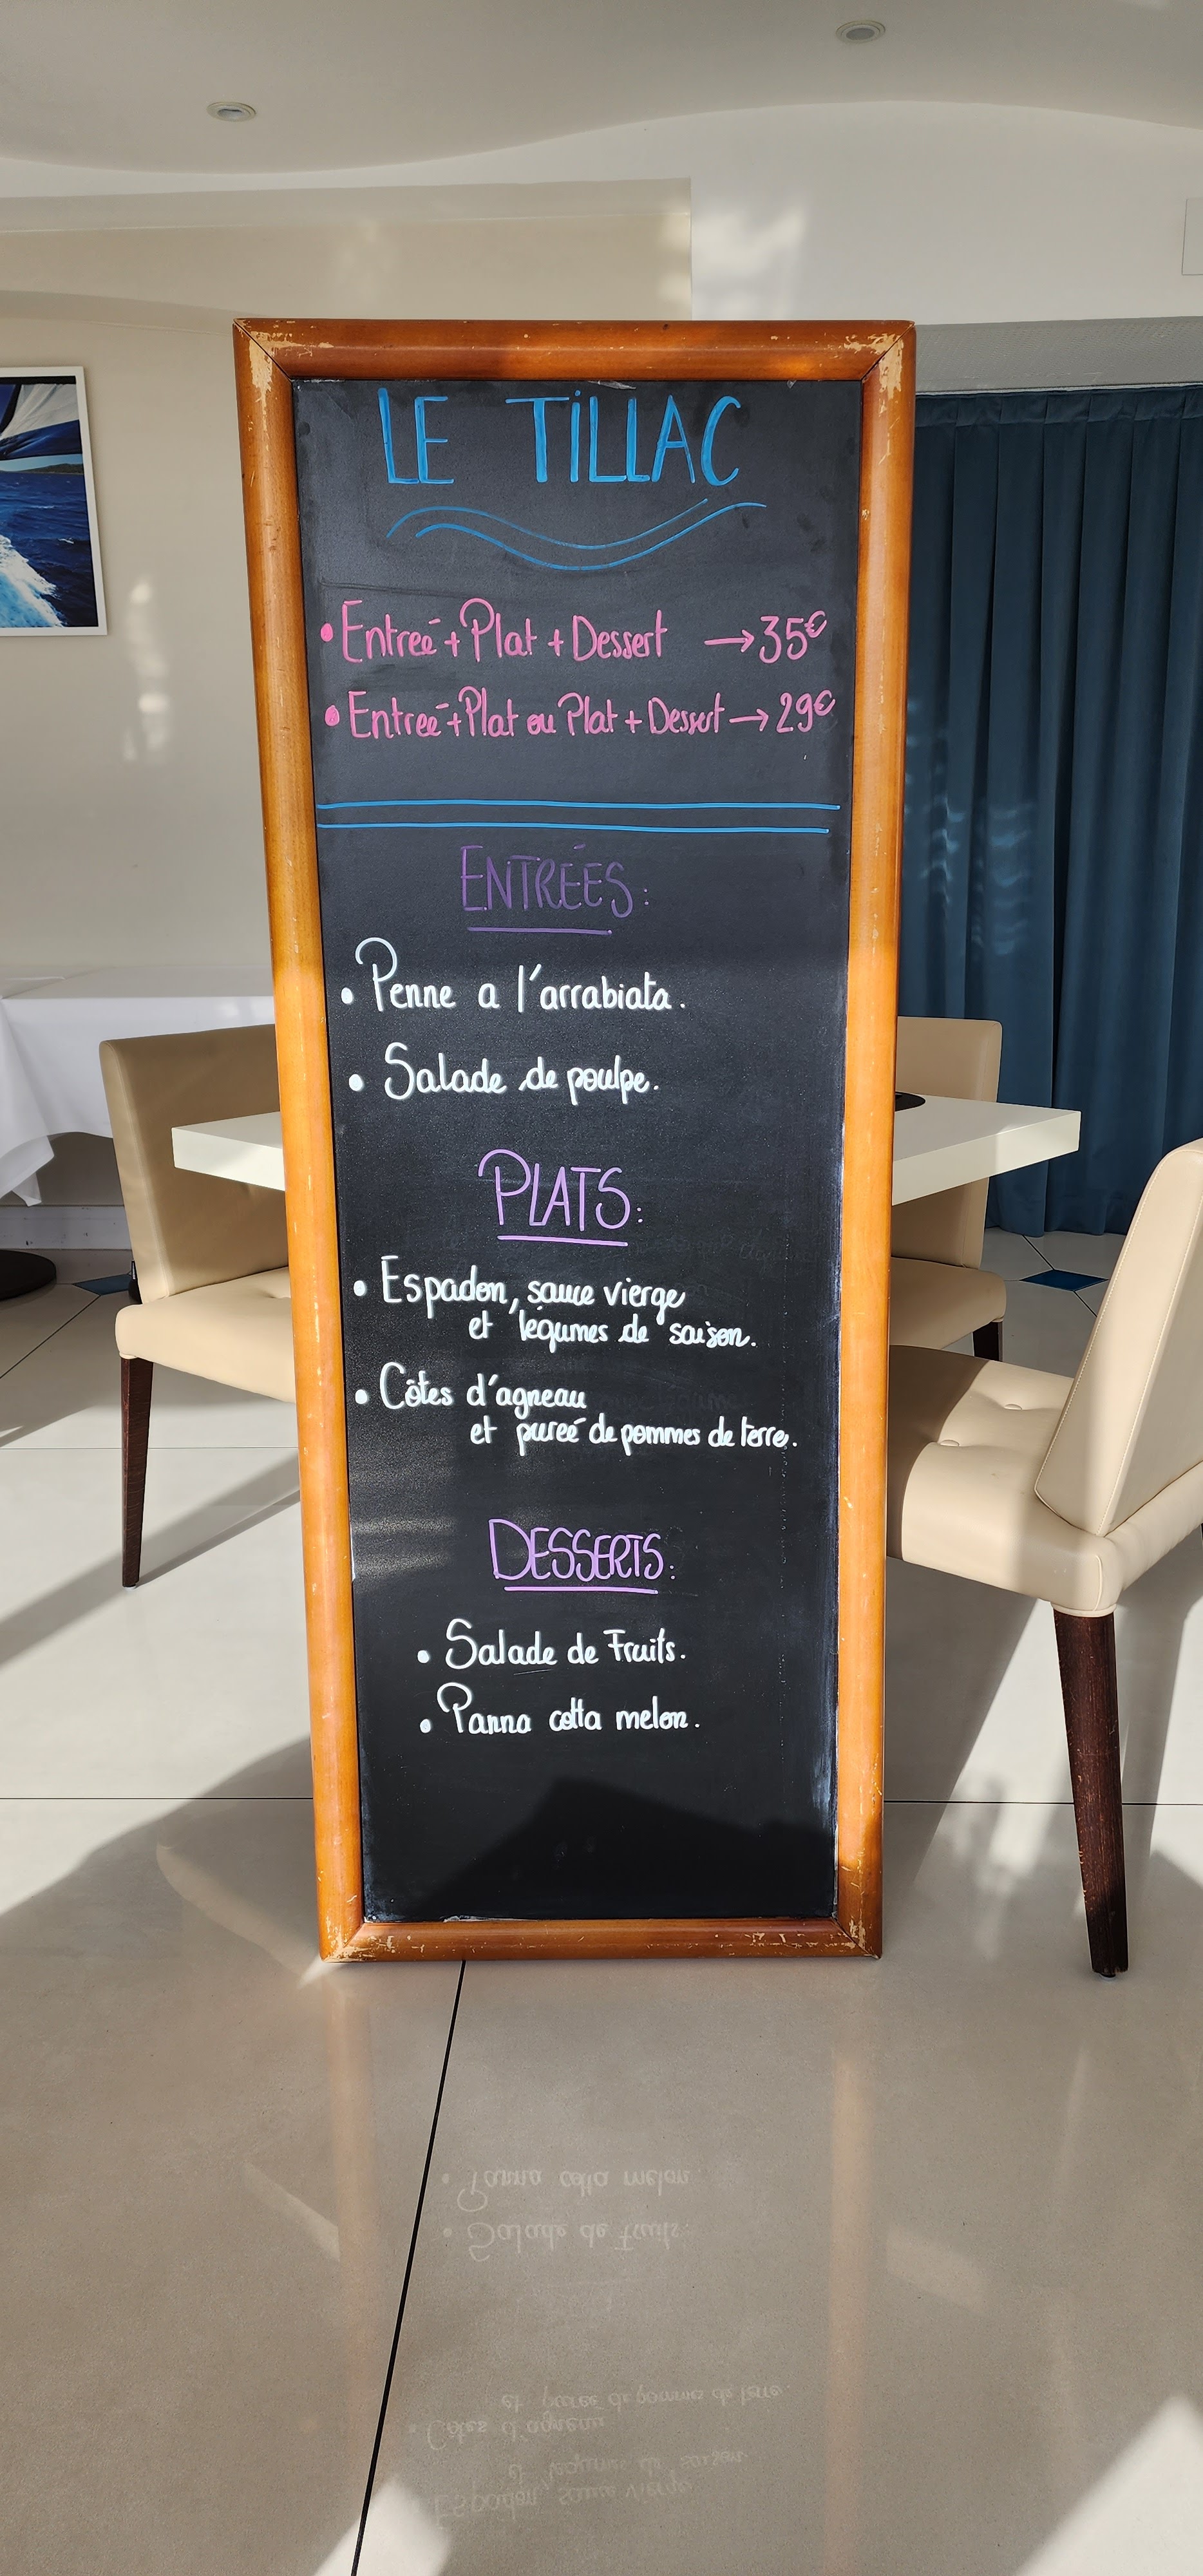 LE TiLLAC
• Entreé + Plat + Dessert → 35€
• Entreé + Plat ou Plat + Dessert → 29€
ENTRÉES:
• Penne a l'arrabiata.
• Salade de poulpe.
PLATS:
• Espadon, sauce vierge
et légumes de saison.
• Côtes d'agneau
et pureé de pommes de terre.
DESSERTS:
• Salade de Fruits.
• Panna cotta melon.